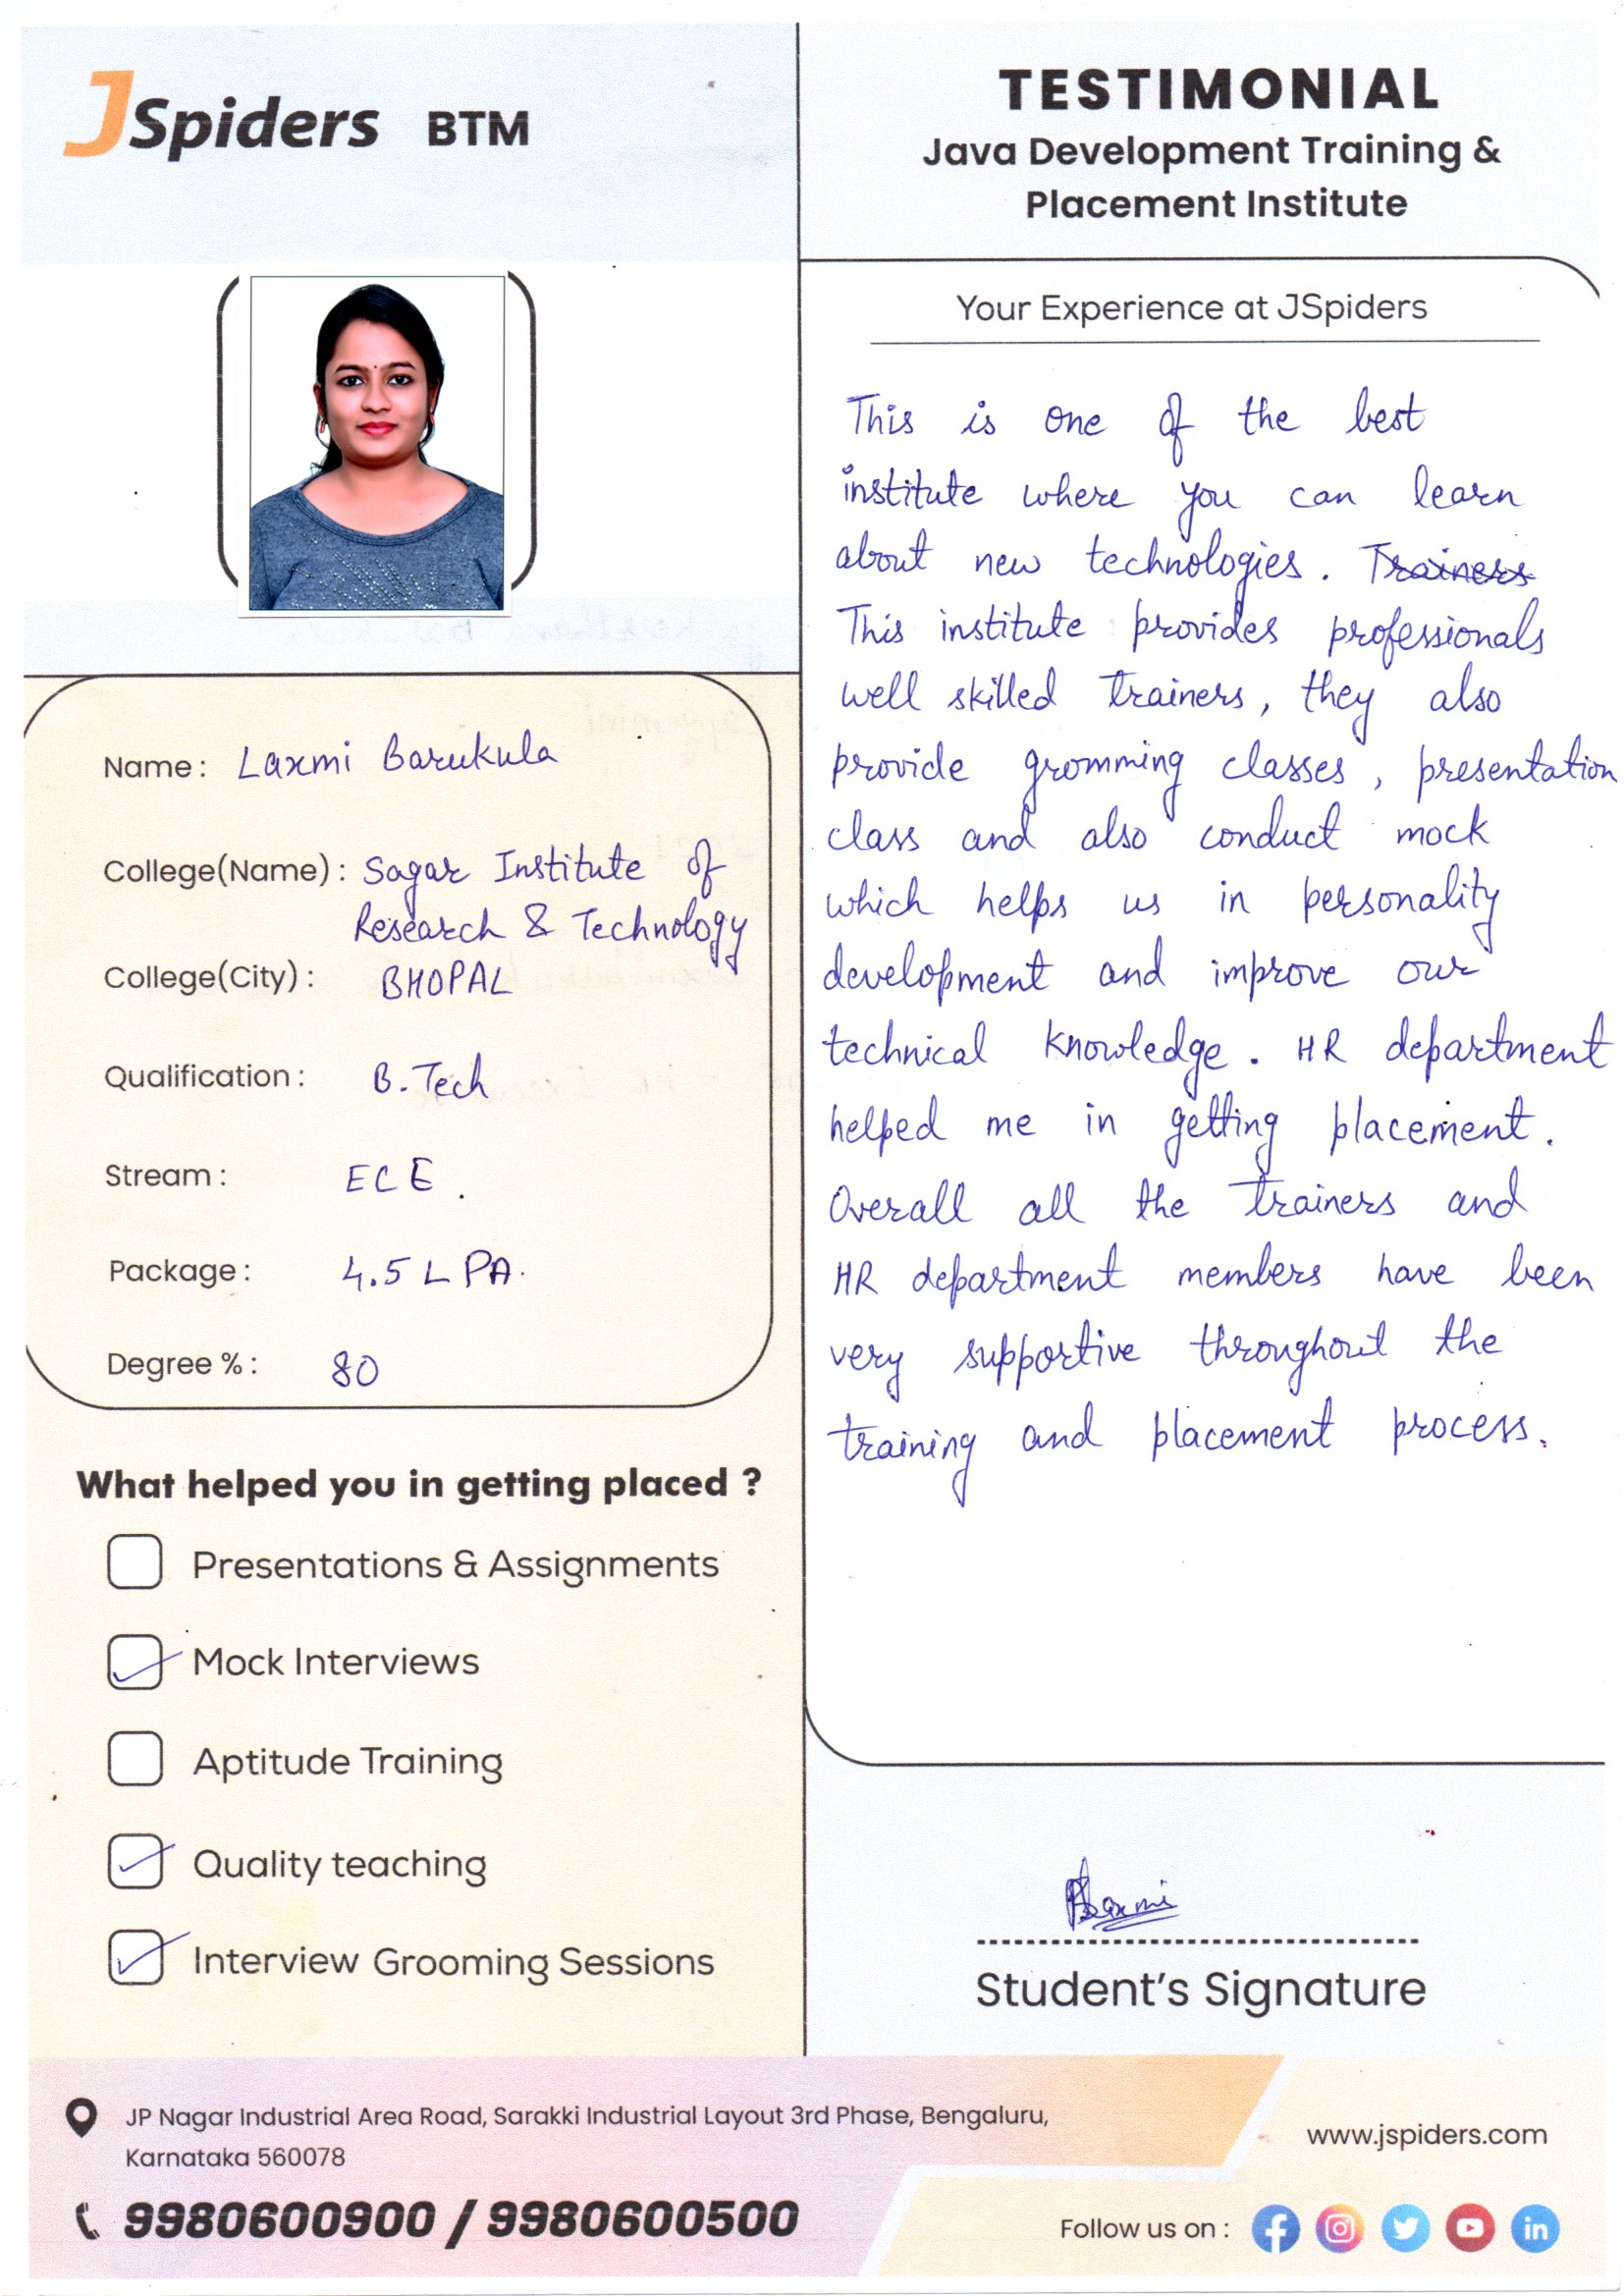 JSpiders BTM
TESTIMONIAL
Java Development Training &
Placement Institute
Name : Laxmi Barukula
College(Name) : Sagar Institute of
Research & Technology
College(City) : BHOPAL
Qualification : B.Tech
Stream : ECE .
Package : 4.5 L PA.
Degree % : 80
What helped you in getting placed ?
Presentations & Assignments
Mock Interviews
Aptitude Training
Quality teaching
Interview Grooming Sessions
Your Experience at JSpiders
This is one of the best
institute where you can learn
about new technologies. Trainers
This institute provides professionals
well skilled trainers, they also
provide gromming classes, presentation
class and also conduct mock
which helps us in personality
development and improve our
technical knowledge. HR department
helped me in getting placement.
Overall all the trainers and
HR department members have been
very supportive throughout the
training and placement process.
Student's Signature
JP Nagar Industrial Area Road, Sarakki Industrial Layout 3rd Phase, Bengaluru,
Karnataka 560078
9980600900 / 9980600500
www.jspiders.com
Follow us on :